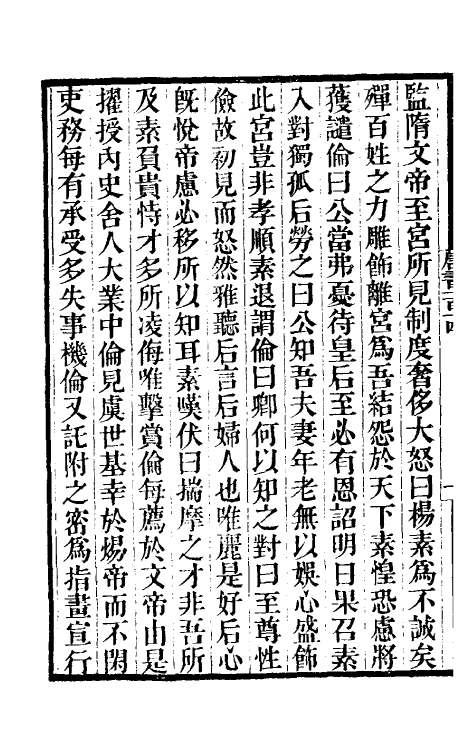 監隋文帝至宮所見制度奢侈大怒曰楊素爲不誠矣
殫百姓之力雕飾離宮爲吾結怨於天下素惶恐慮將
獲譴倫曰公當弗憂待皇后至必有恩詔明日果召素
入對獨孤后勞之曰公知吾夫妻年老無以娛心盛飾
此宮豈非孝順素退謂倫曰卿何以知之對曰至尊性
儉故初見而怒然雅聽后言后婦人也唯麗是好后心
旣悅帝慮必移所以知耳素嘆伏曰揣摩之才非吾所
及素負貴恃才多所凌侮唯擊賞倫每薦於文帝由是
擢授內史舍人大業中倫見虞世基幸於煬帝而不閑
吏務每有承受多失事機倫又託附之密爲指畫宣行